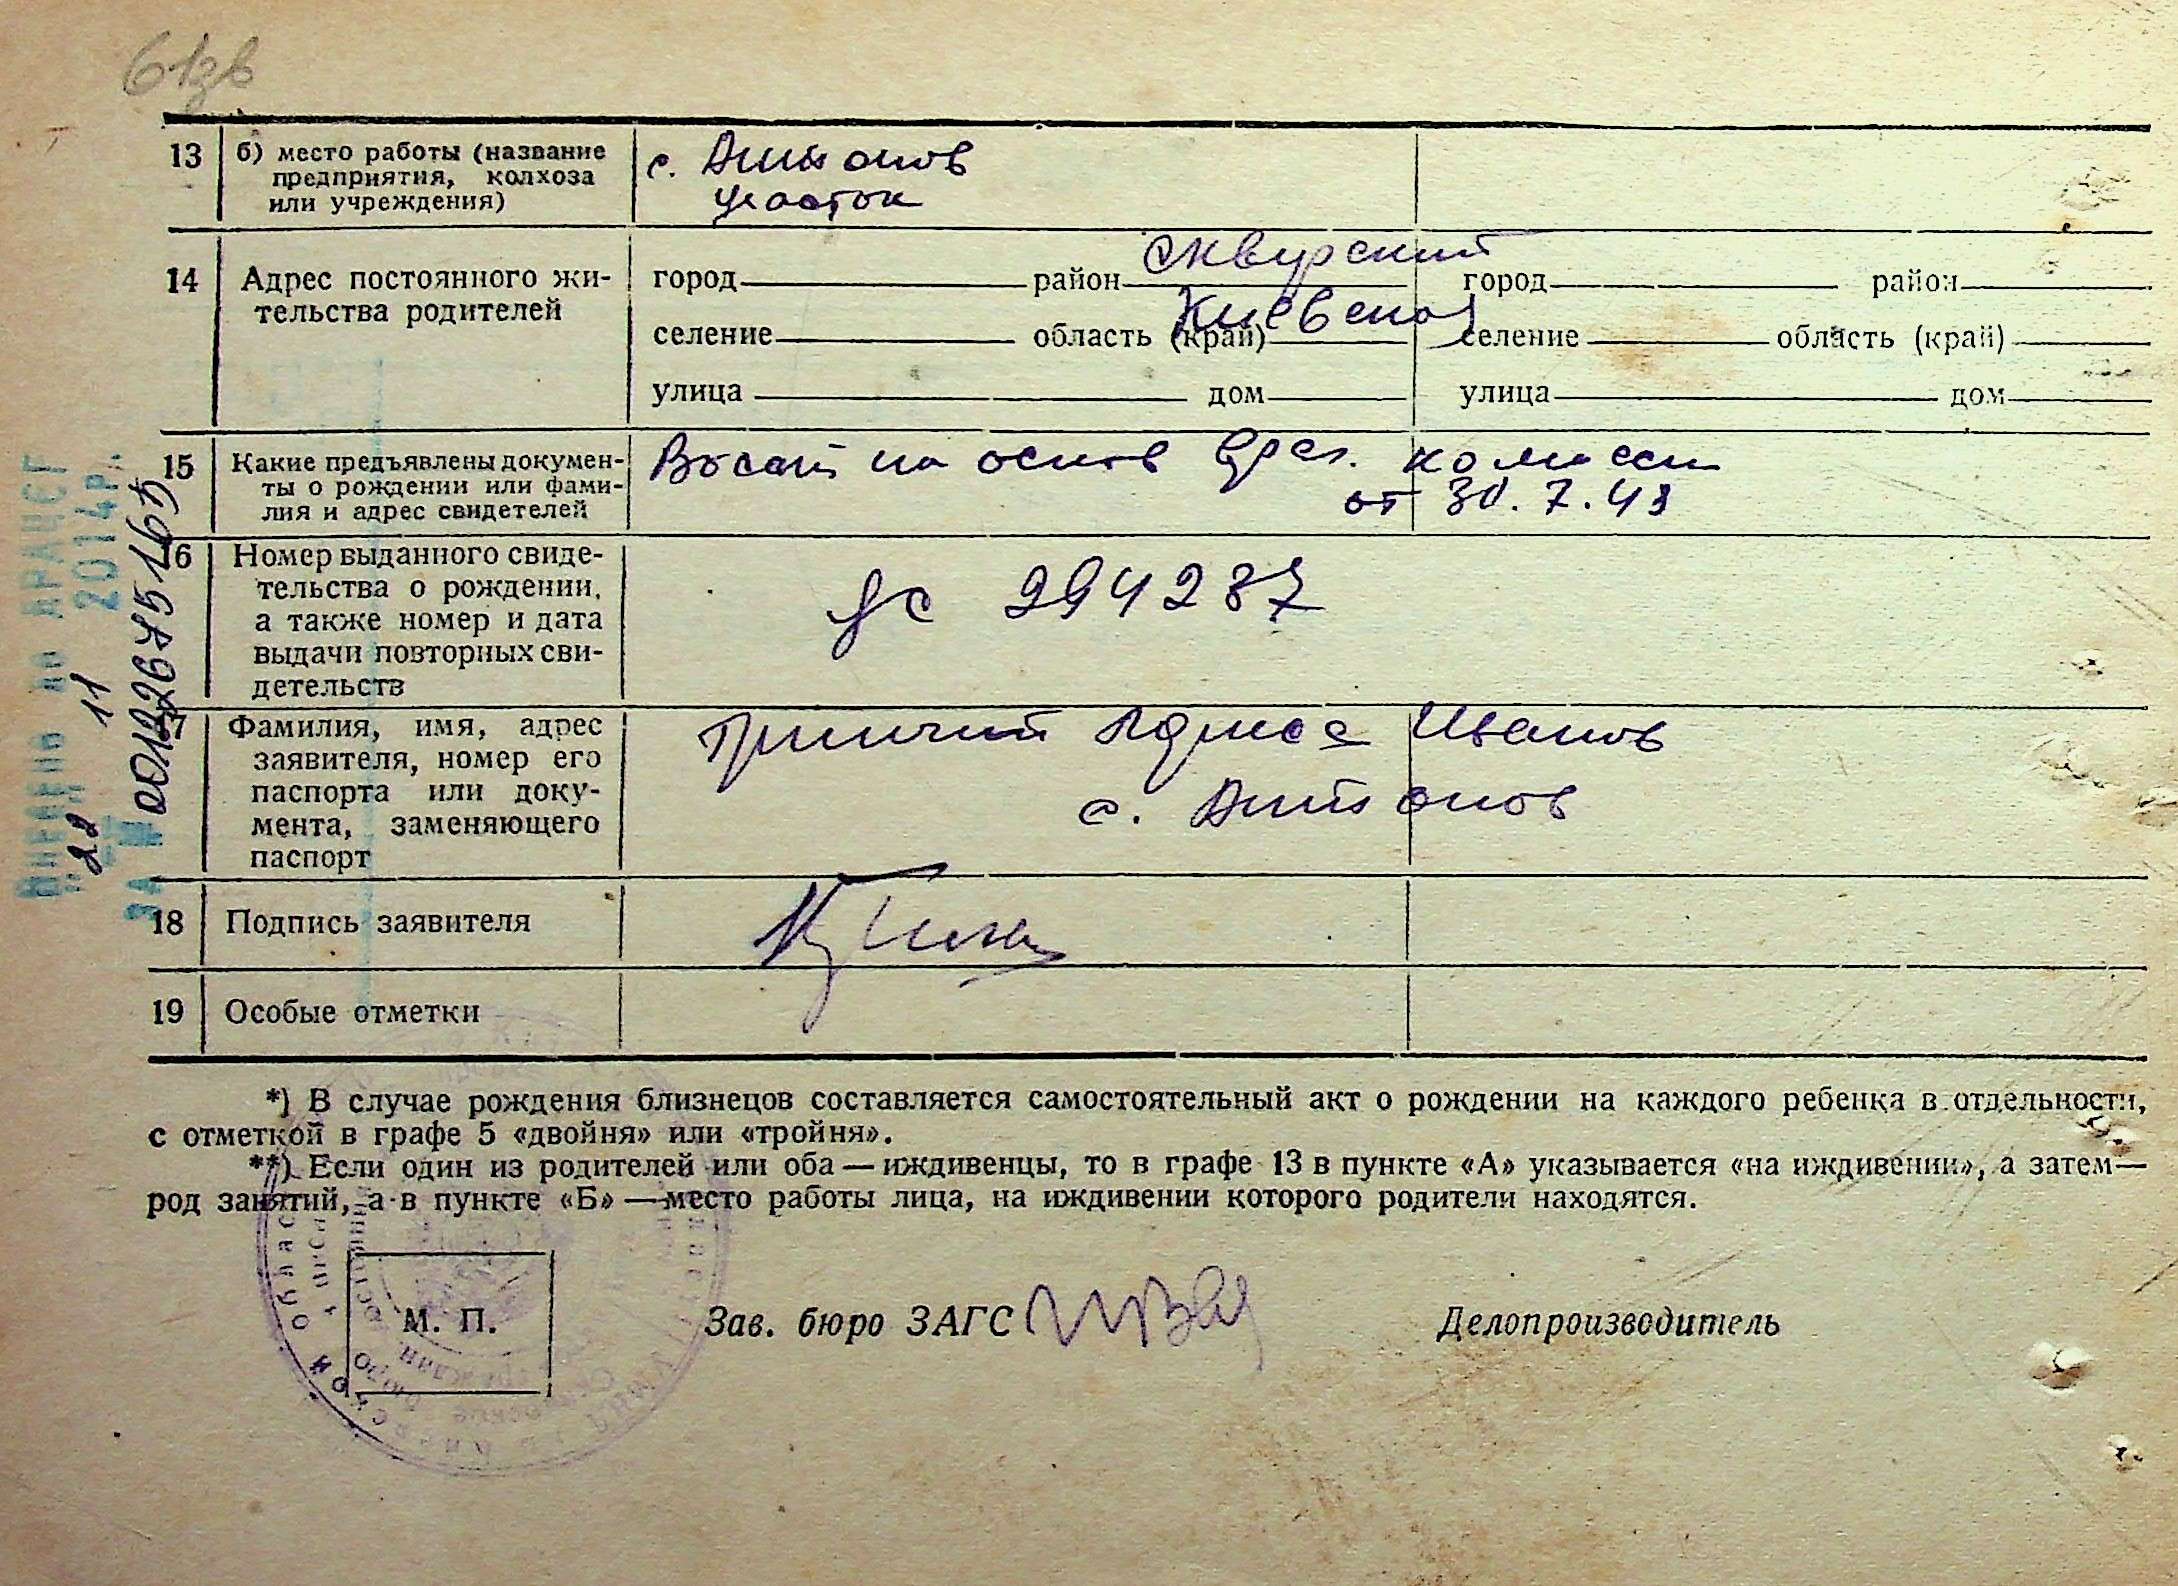 61зв
13 б) место работы (название
предприятия, колхоза
или учреждения)
с. Антонов
участок
14 Адрес постоянного жи-
тельства родителей
город район Сквирский город район
селение область (край) Киевская селение область (край)
улица дом улица дом
15 Какие предъявлены докумен-
ты о рождении или фами-
лия и адрес свидетелей
на основ комисси
от 30.7.49
16 Номер выданного свиде-
тельства о рождении,
а также номер и дата
выдачи повторных сви-
детельств
294287
17 Фамилия, имя, адрес
заявителя, номер его
паспорта или доку-
мента, заменяющего
паспорт
с. Антонов
18 Подпись заявителя
19 Особые отметки
*) В случае рождения близнецов составляется самостоятельный акт о рождении на каждого ребенка в отдельности,
с отметкой в графе 5 «двойня» или «тройня».
**) Если один из родителей или оба — иждивенцы, то в графе 13 в пункте «А» указывается «на иждивении», а затем —
род занятий, а в пункте «Б» — место работы лица, на иждивении которого родители находятся.
М. П.
Зав. бюро ЗАГС
Делопроизводитель
Внесено до ДРАЦСГ
"22" 11 2014р.
ЗА № 00122675165